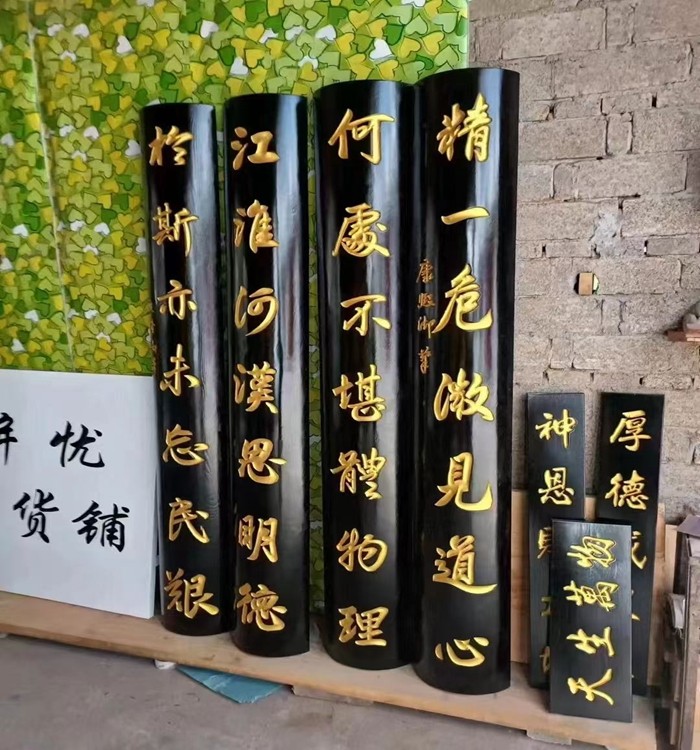 厚德
神恩
天生萬物
精一危微見道心
康熙御筆
何處不堪體物理
江淮河漢思明德
於斯亦未忘民艱
忧
货铺